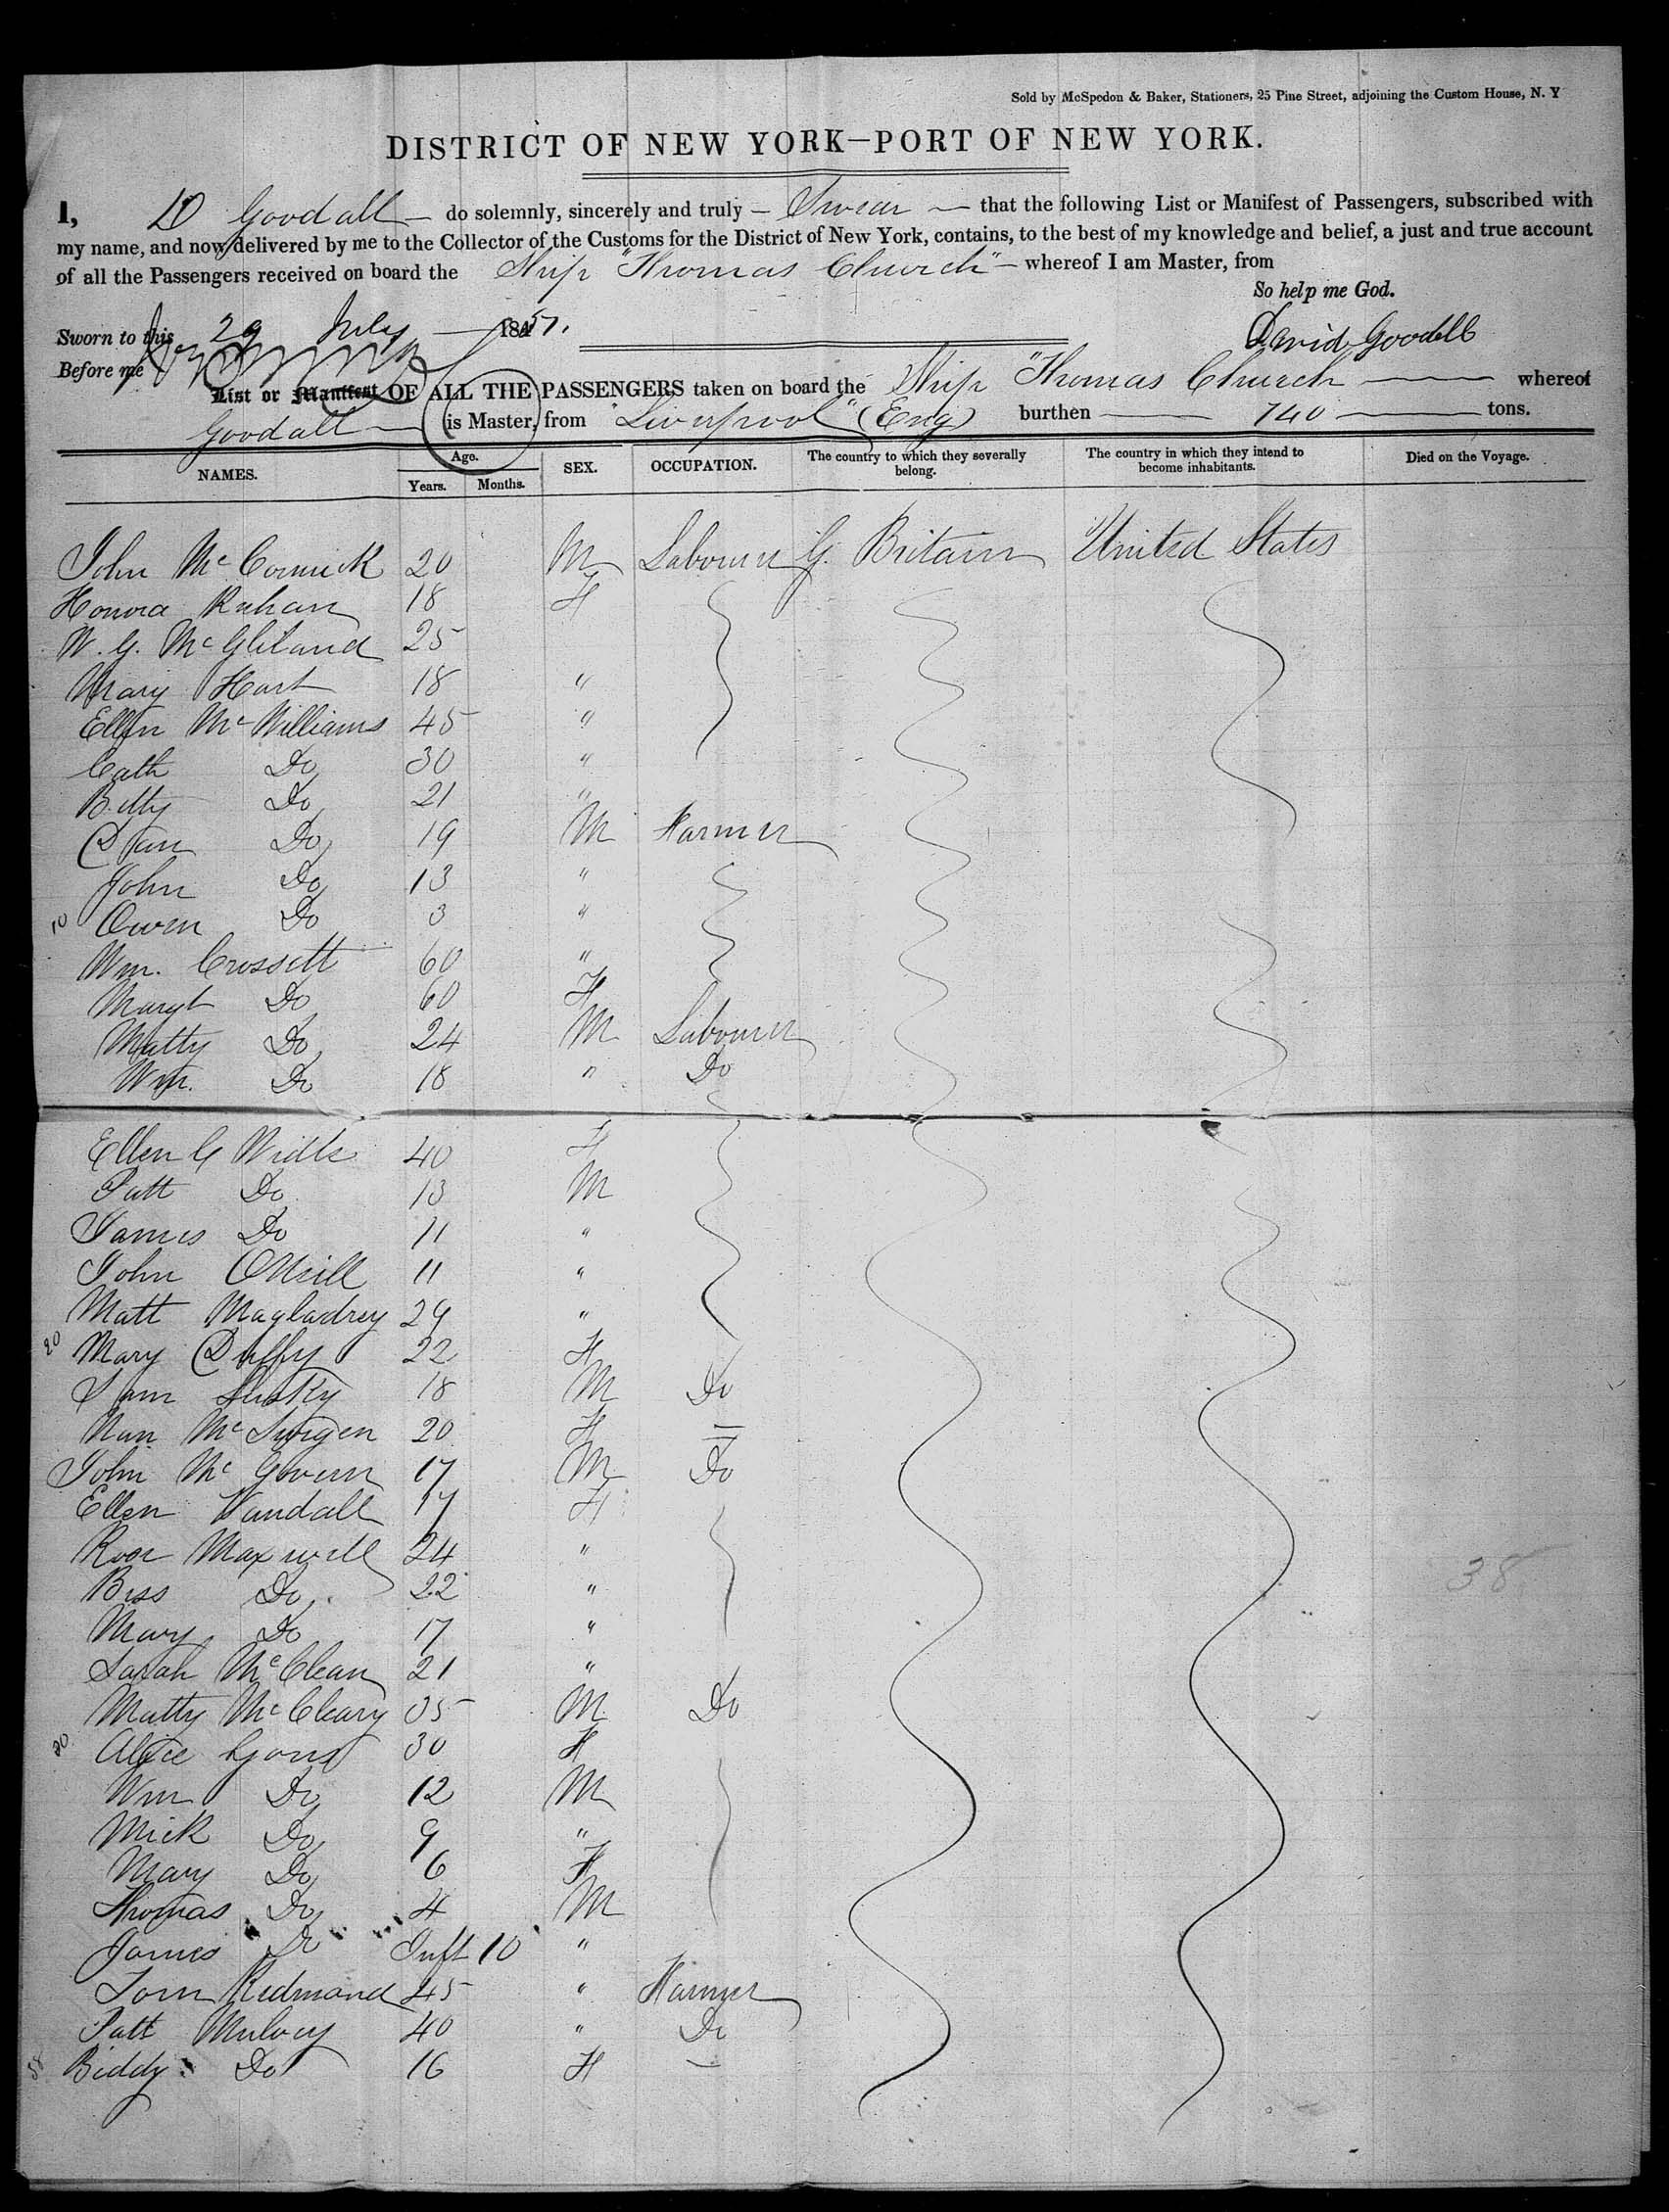 Sold by McSpedon & Baker, Stationers, 25 Pine Street, adjoining the Custom House, N. Y
DISTRICT OF NEW YORK—PORT OF NEW YORK.
I, D Goodall — do solemnly, sincerely and truly — Swear — that the following List or Manifest of Passengers, subscribed with
my name, and now delivered by me to the Collector of the Customs for the District of New York, contains, to the best of my knowledge and belief, a just and true account
of all the Passengers received on board the Ship "Thomas Church" — whereof I am Master, from
So help me God.
Sworn to this 29 July 1851.
David Goodall
Before me
List or Manifest OF ALL THE PASSENGERS taken on board the Ship "Thomas Church" — whereof
Goodall — is Master, from "Liverpool" (Eng) burthen — 740 — tons.
NAMES. Age. Years. Months. SEX. OCCUPATION. The country to which they severally belong. The country in which they intend to become inhabitants. Died on the Voyage.
John McCormick 20 M Labourer G. Britain United States
Honora 18 F
W. G. 25
Mary Hart 18 "
Ellen McWilliams 45 "
Cath Do 30 "
Betty Do 21 "
Dan Do 19 M Farmer
John Do 13 "
10 Owen Do 3 "
Wm. Crossett 60 "
Margt Do 60 F
Matty Do 24 M Labourer
Wm. Do 18 " Do
Ellen 40 F
Patt Do 13 M
James Do 11 "
John ONeill 11 "
Matt 29 "
20 Mary Duffy 22 F
Sam 18 M Do
Nan 20 F —
John McGovern 17 M Do
Ellen 17 F
Rose Maxwell 24 "
Bess Do 22 "
38
Mary Do 17 "
Sarah McClean 21 "
Matty McCleary 35 M Do
30 Alice 30 F
Wm Do 12 M
Mick Do 9 "
Mary Do 6 F
Thomas Do 4 M
James Do Inft 10 "
Tom Redmond 45 " Farmer
Patt 40 " Do
38 Biddy Do 16 F —